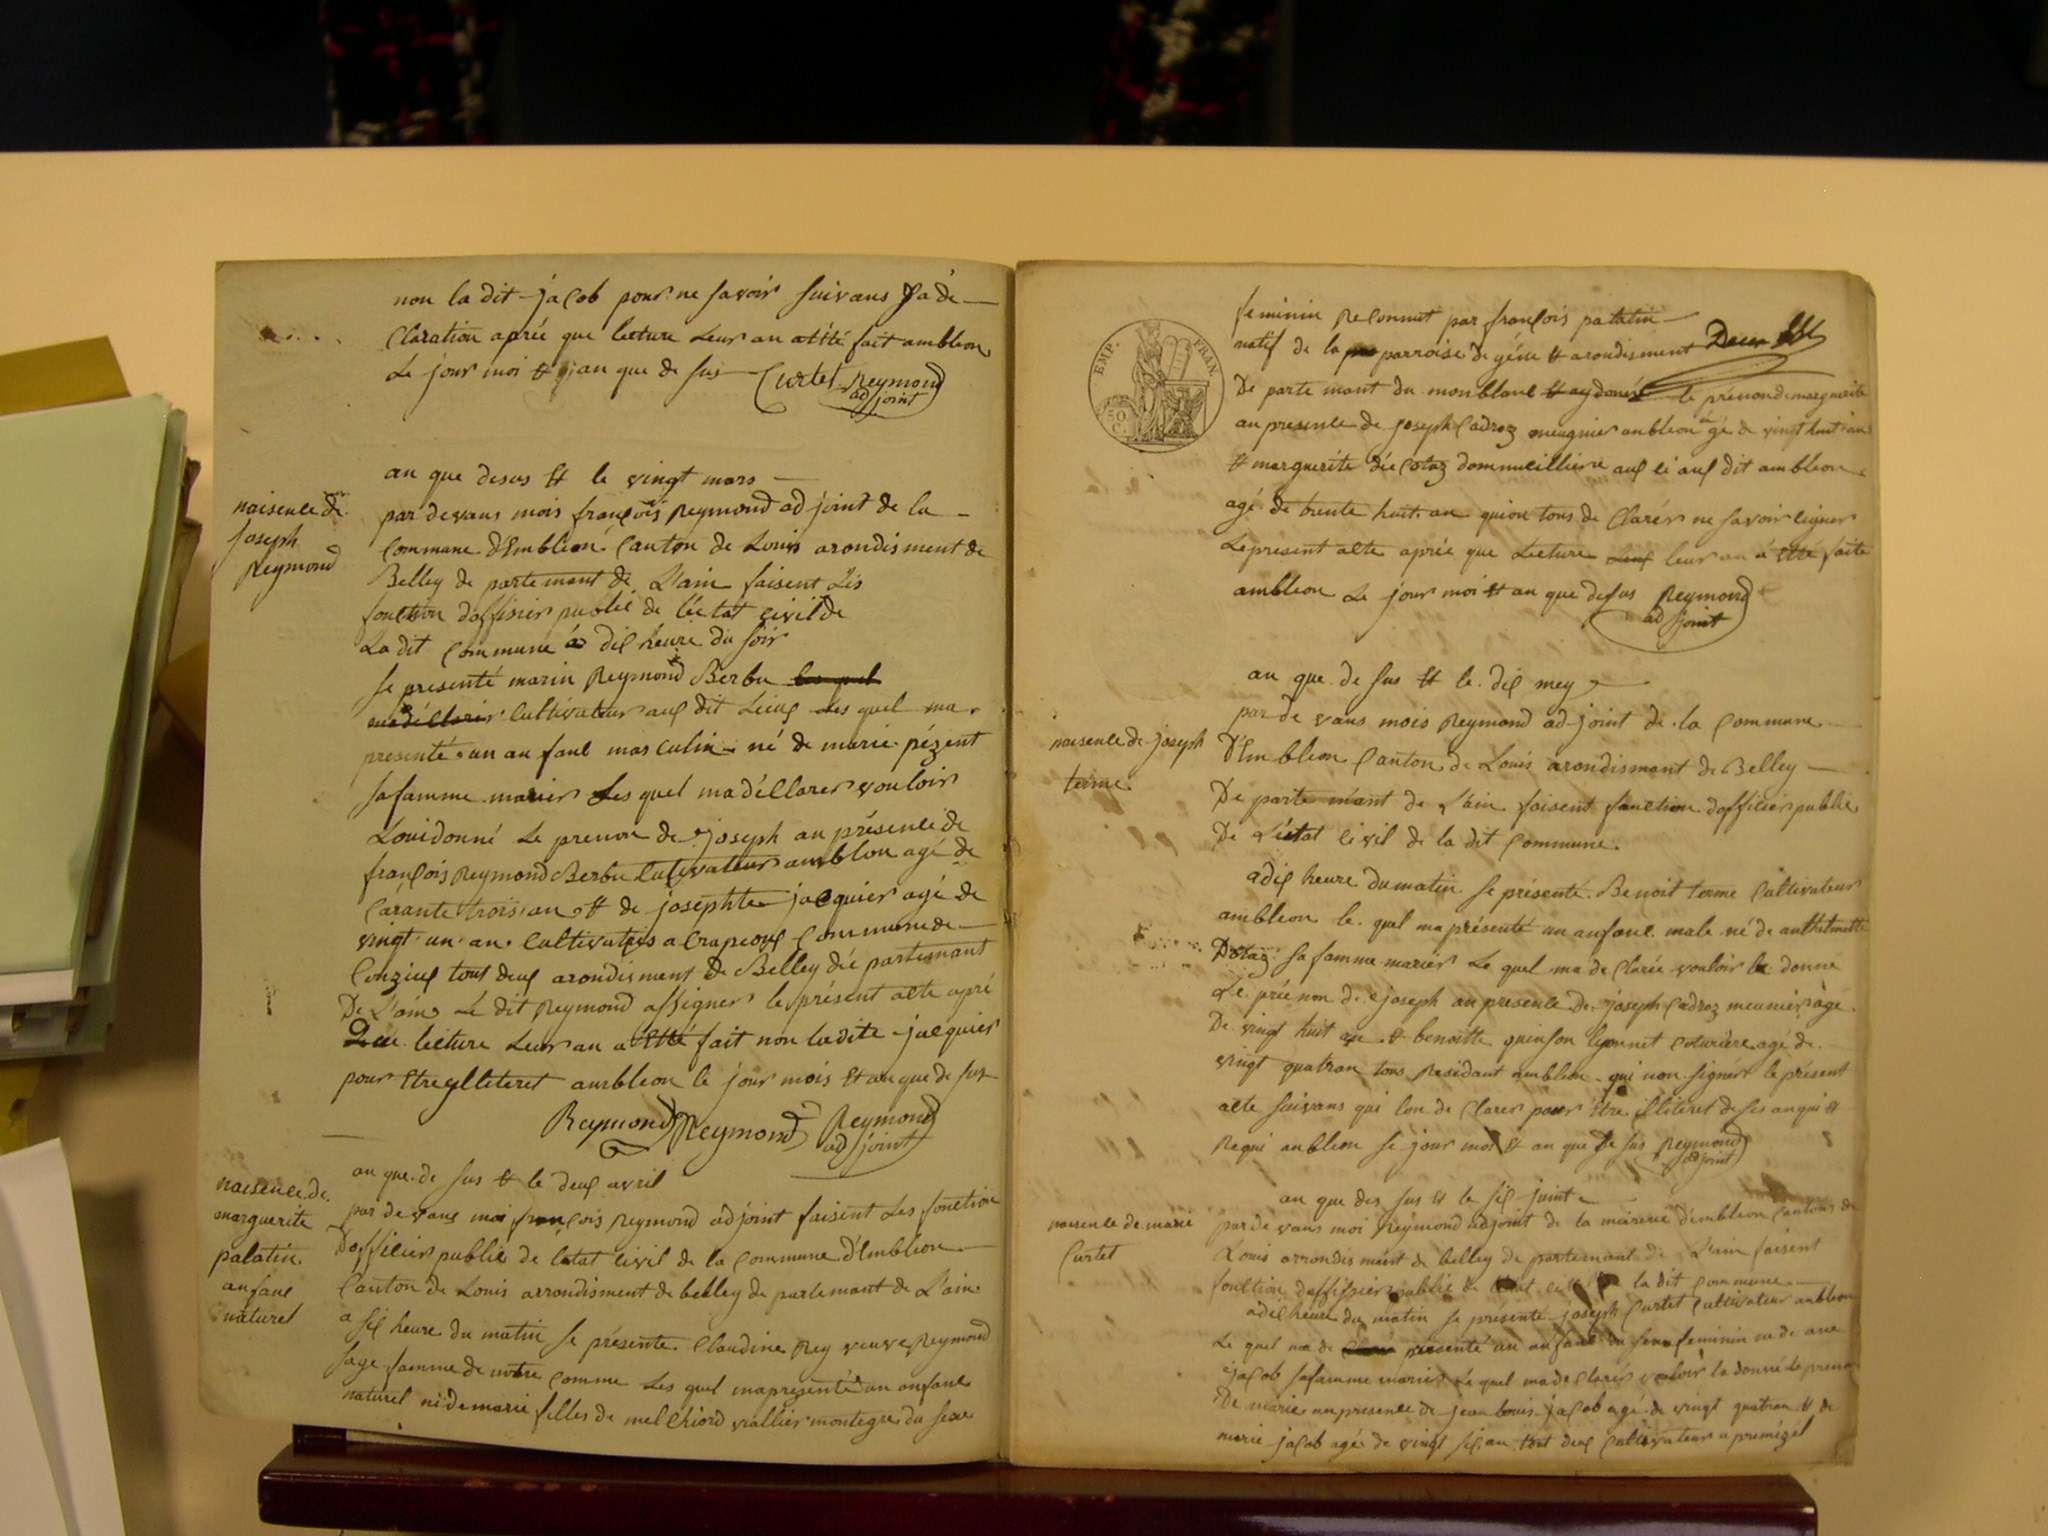 non la dit jacob pour ne savoir suivans sa dé
claration aprée que lecture leur an at été fait ambleon
Le jour moi et an que de sus Curtet Reymond
ad joint
an que desus et le vingt mars
naisence de
joseph
Reymond
par devans mois françois Reymond ad joint de la
commune d'Embleon canton de Louis arondisment de
Belley de partemant de L'ain faisent Lés
fonction d'offisier publié de l'état civil de
La dit commune à dix heure du soir
se presenté marin Reymond Berbu
cultivateur aux dit Lieux Les quel ma
presenté un anfant masculin né de marie pézent
sa famme marier Les quel ma déclarer vouloir
Loui donné Le prenon de joseph an présence de
françois Reymond Berbu cultivateur amblon agé de
carante trois an et de josephte jacquier agé de
vingt un an cultivateur a Crapeoux commune de
Conzieu tout deux arondisment de Belley dée partemant
De L'ain Le dit Reymond a signer le présent acte apré
Que lecture Leur an a été fait non ladite jacquier
pour être illiteret ambleon le jour mois et an que de sus
Reymond Reymond Reymond
ad joint
an que de sus et le deux avril
naisence de
marguerite
palatin
anfant
naturel
par de vans moi françois Reymond adjoint faisent Les fonction
D'officier publié de l'état civil de la commune d'Embleon
Canton de Louis arrondisment de belley de partemant de L'ain
a six heure du matin se présente Claudine Rey veuve Reymond
sage famme de notre comme Les quel ma presenté un anfant
naturel né de marie filles de melchiord vallier montegre du sexe
EMP. FRAN.
50
C.
feminin reconnut par françois palatin
natif de la parroise de géne et arondisment
De partemant du monblanc et ay donné le prénon de marguerite
an presence de joseph Cadroz meugnier anbleon agé de vingt huit an
et marguerite dée Cotaz dommucillière aux li aux dit ambleon
agé de trente huit an qui on tous de clarér ne savoir signer
Le present acte aprée que Lecture leur an a été faite
ambleon Le jour moi et an que desus Reymond
ad joint
an que de sus et le dix mey
naisence de joseph
terme
par de vans mois Reymond ad joint de la commune
D'Embleon Canton de Louis arondismant de Belley
De partemant de L'ain faisent fonction d'officier publie
De L'état civil de la dit commune.
a dix heure du matin se présenté Benoit terme Cultivateur
ambleon le quel ma présenté un anfant male né de
Dotaz sa famme marier Le quel ma de clarée vouloir donné
Le prénon de joseph an presence de joseph Cadroz meunier agé
De vingt huit an et benoitte quinson couturière agé de
vingt quatran tous residant ambleon qui non signer le présent
acte suivans qui lon de clarer pour être illiteret de ses an qui et
Requi anbleon se jour moi et an que de sus Reymond
adjoint
an que des sus et le six juint
naisence de marie
Curtet
par de vans moi Reymond adjoint de la mairerie d'embleon Canton de
Louis arrondismant de belley de partemant de L'ain faisent
fonction d'offisier publié de la dit commune
a dix heure du matin se présenté joseph Curtet Cultivateur anbleon
Le quel ma presenté un anfant du sexe feminin né de ane
jacob sa famme marier Le quel ma de clarér vouloir la donné Le prenon
De marie an presence de jean louis jacob agé de vingt quatran et de
marie jacob agé de vingt six an tout deux Cultivateur a premizel